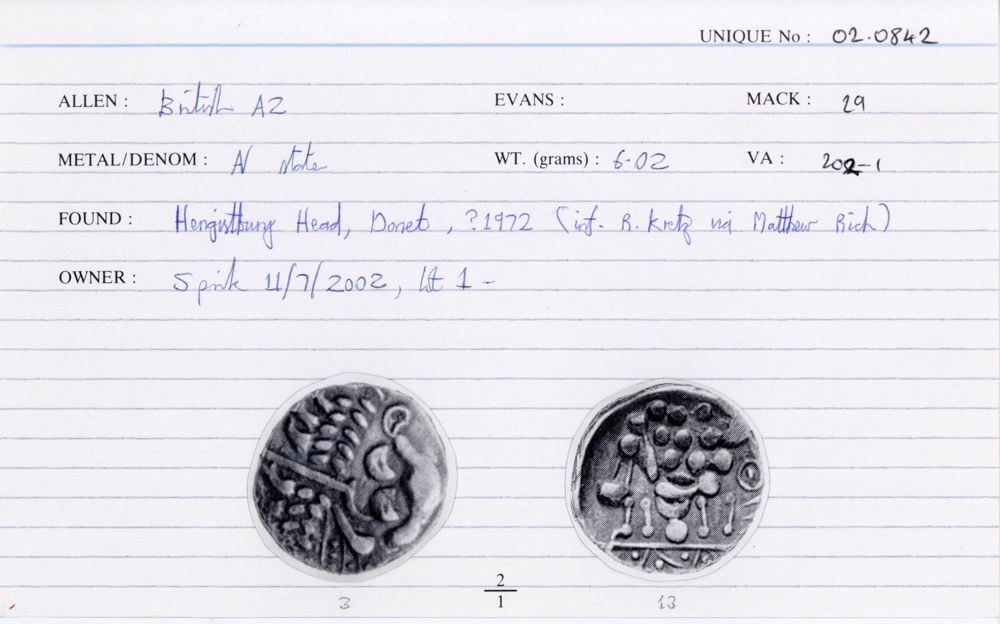 UNIQUE No : 02.0842
ALLEN : British A2 EVANS : MACK : 29
METAL/DENOM : N state WT. (grams) : 6.02 VA : 202-1
FOUND : Hengistbury Head, Dorset, ?1972 (inf. R. Kretz via Matthew Rich)
OWNER : Spink 11/7/2002, lot 1 -
2
1
3 13